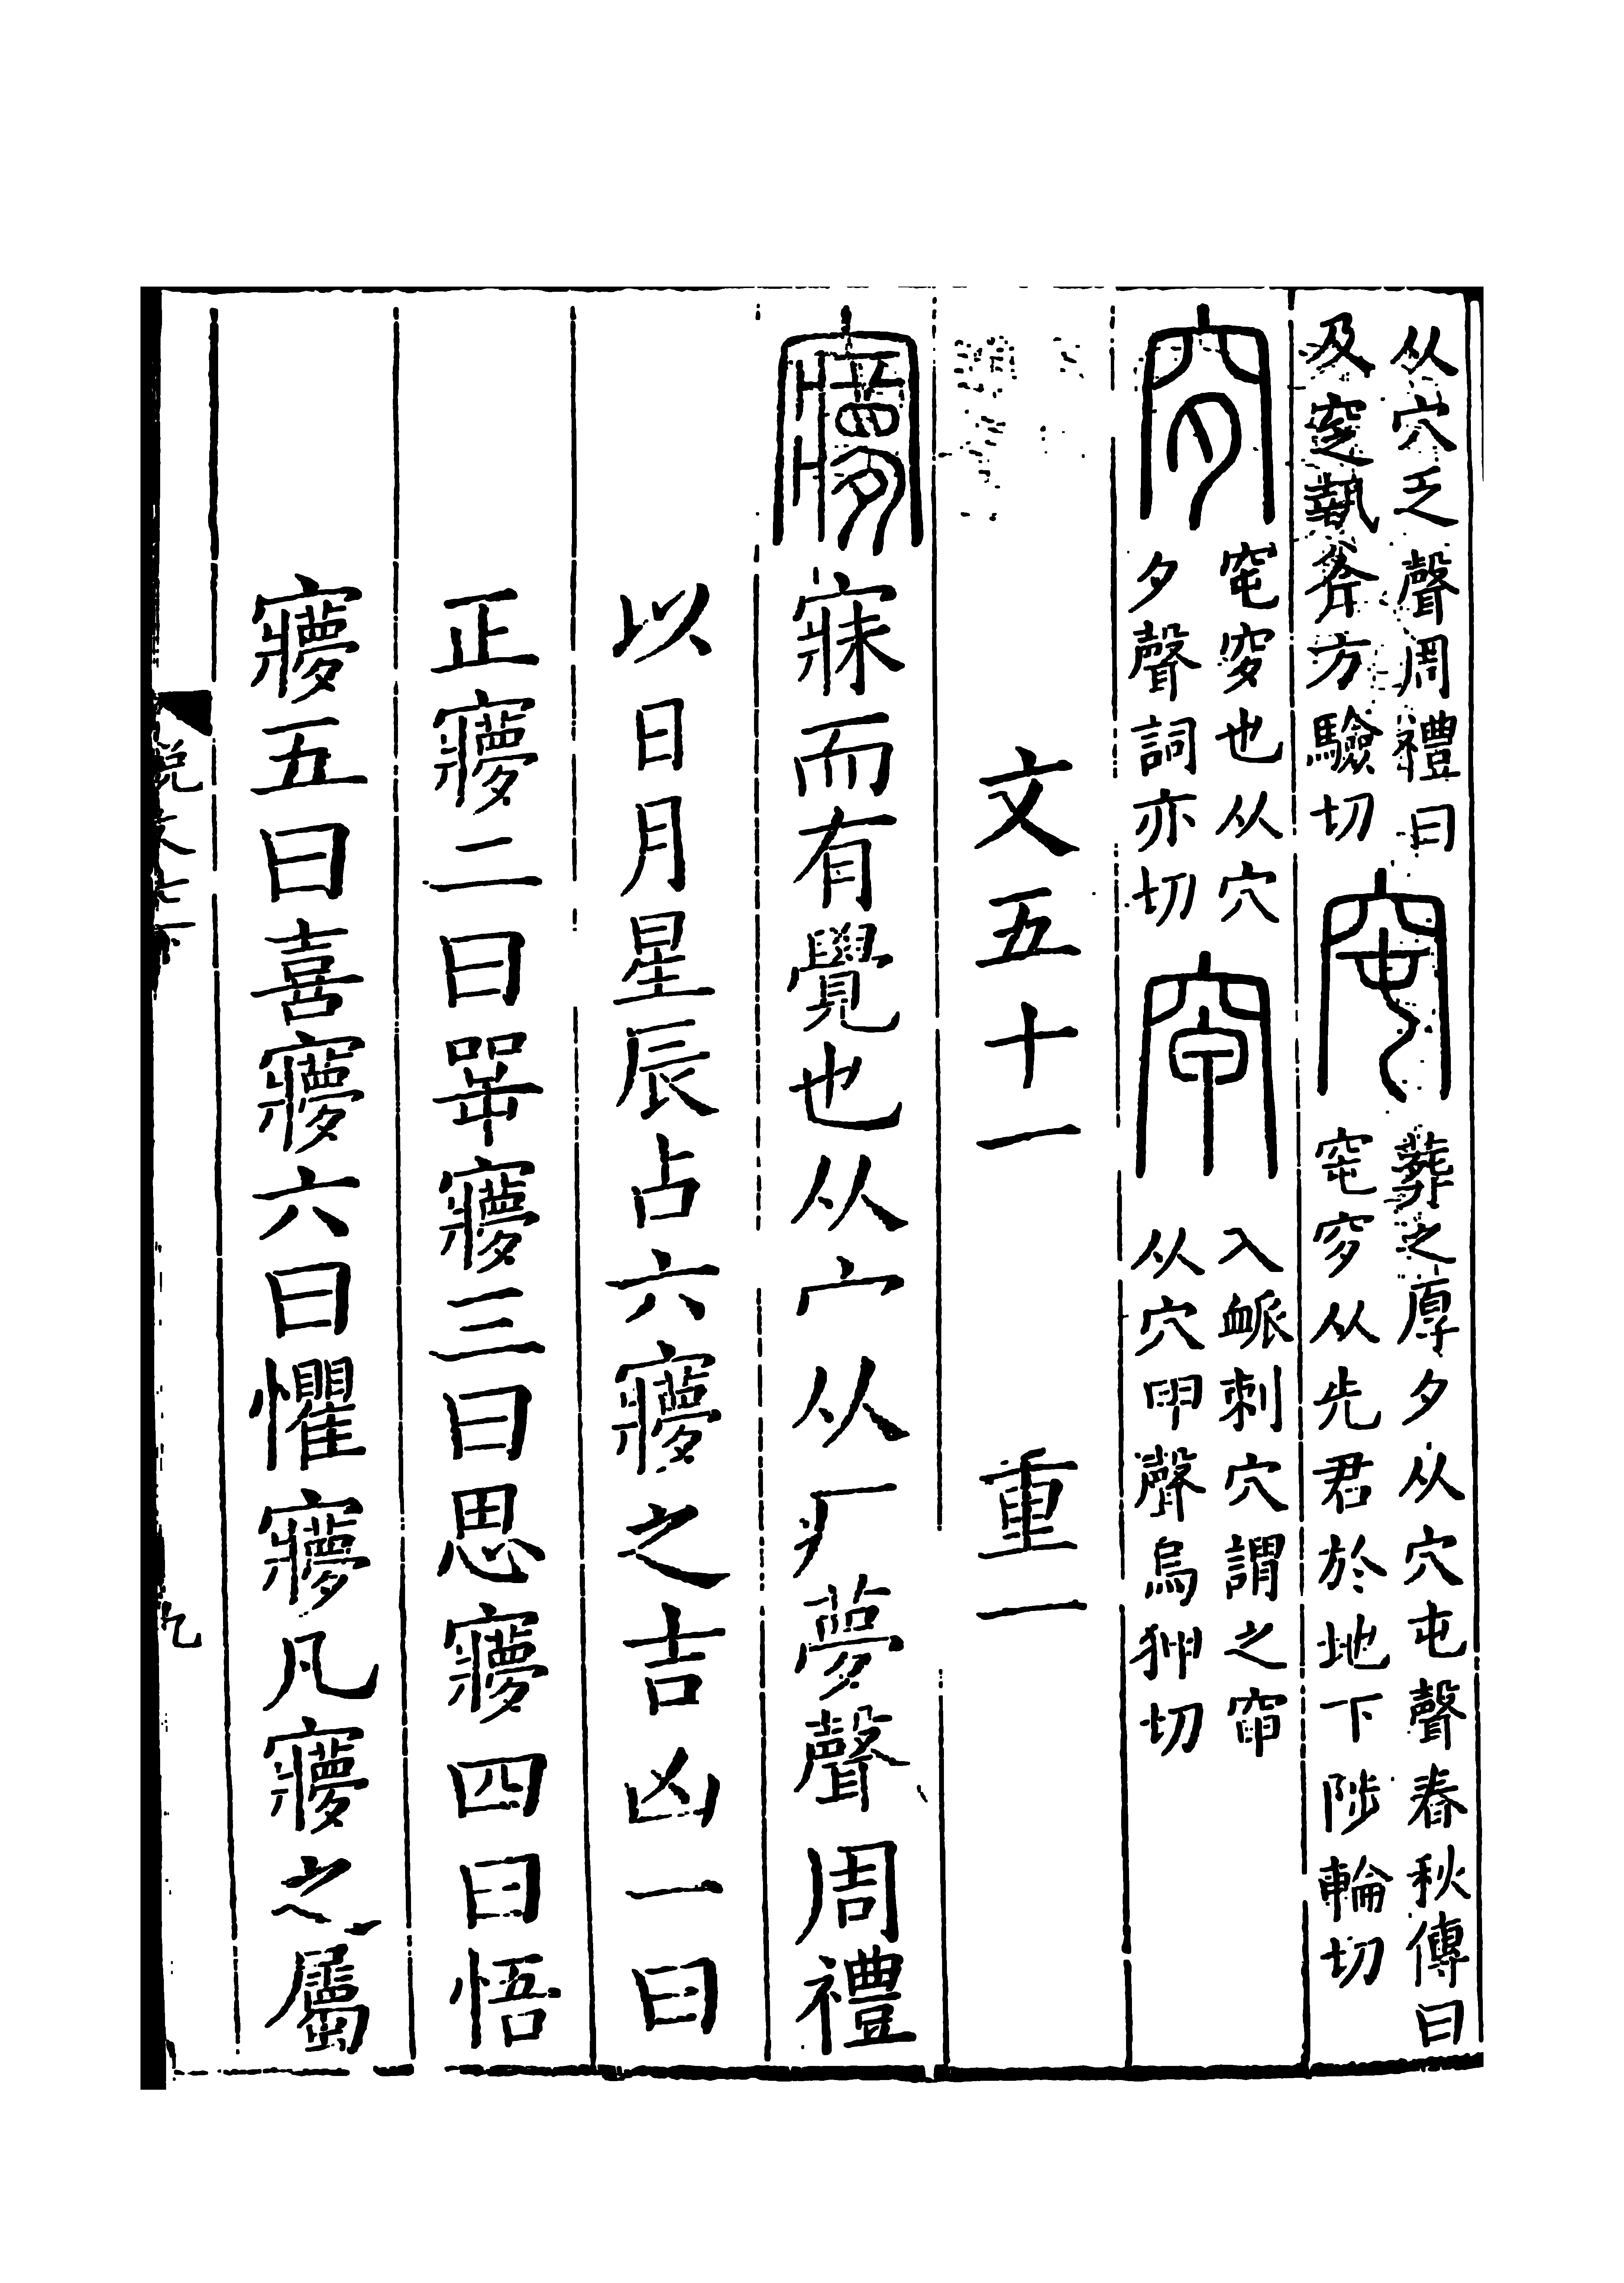 从穴乏聲周禮曰
及窆執斧方驗切
窀
葬之厚夕从穴屯聲春秋傳曰
窀穸从先君於地下陟輪切
穸
窀穸也从穴
夕聲詞亦切
𥥆
入衇刺穴謂之𥥆
从穴甲聲烏狎切
文五十一　重一
㝱寐而有覺也从宀从疒夢聲周禮
以日月星辰占六㝱之吉凶一曰
正㝱二曰㖾㝱三曰思㝱四曰悟
㝱五曰喜㝱六曰懼㝱凡㝱之屬
説文七下
九